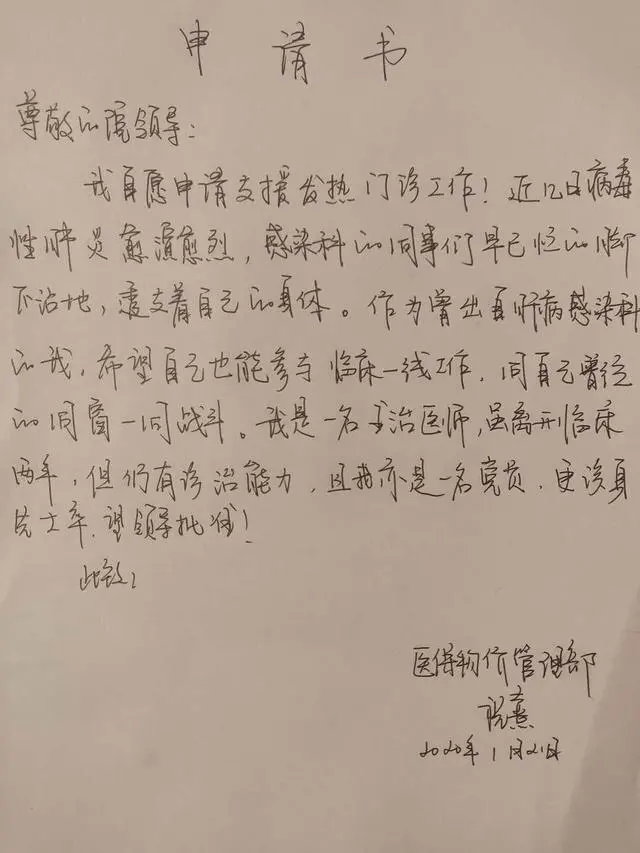 申请书
尊敬的院领导:
我自愿申请支援发热门诊工作！近几日病毒
性肺炎愈演愈烈，感染科的同事们早已忙的脚
不沾地，透支着自己的身体。作为曾出自肺病感染科
的我，希望自己也能参与临床一线工作，同自己曾经
的同窗一同战斗。我是一名主治医师，虽离开临床
两年，但仍有诊治能力，且我亦是一名党员，更该身
先士卒，望领导批准！
此致！
医保物价管理部
2020年1月21日